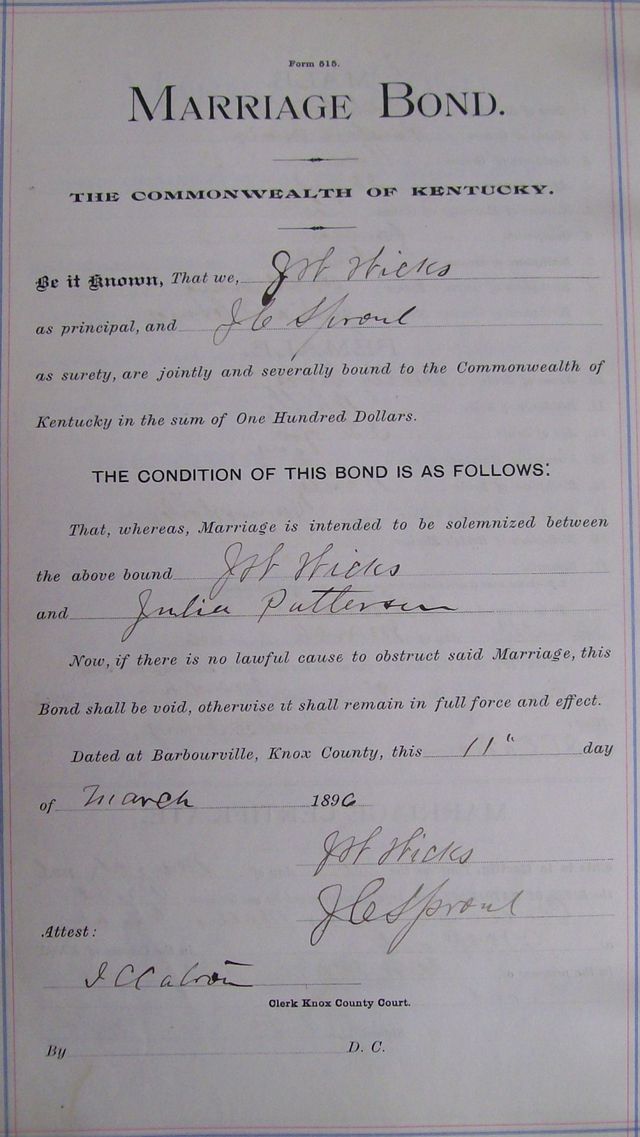 Form 515.
MARRIAGE BOND.
THE COMMONWEALTH OF KENTUCKY.
Be it Known, That we, J W Hicks
as principal, and J C Sproul
as surety, are jointly and severally bound to the Commonwealth of
Kentucky in the sum of One Hundred Dollars.
THE CONDITION OF THIS BOND IS AS FOLLOWS:
That, whereas, Marriage is intended to be solemnized between
the above bound J W Hicks
and Julia Patterson
Now, if there is no lawful cause to obstruct said Marriage, this
Bond shall be void, otherwise it shall remain in full force and effect.
Dated at Barbourville, Knox County, this 11" day
of March 1896
J W Hicks
J C Sproul
Attest:
Clerk Knox County Court.
By D. C.